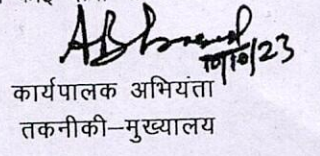 10/10/23
कार्यपालक अभियंता
तकनीकी–मुख्यालय